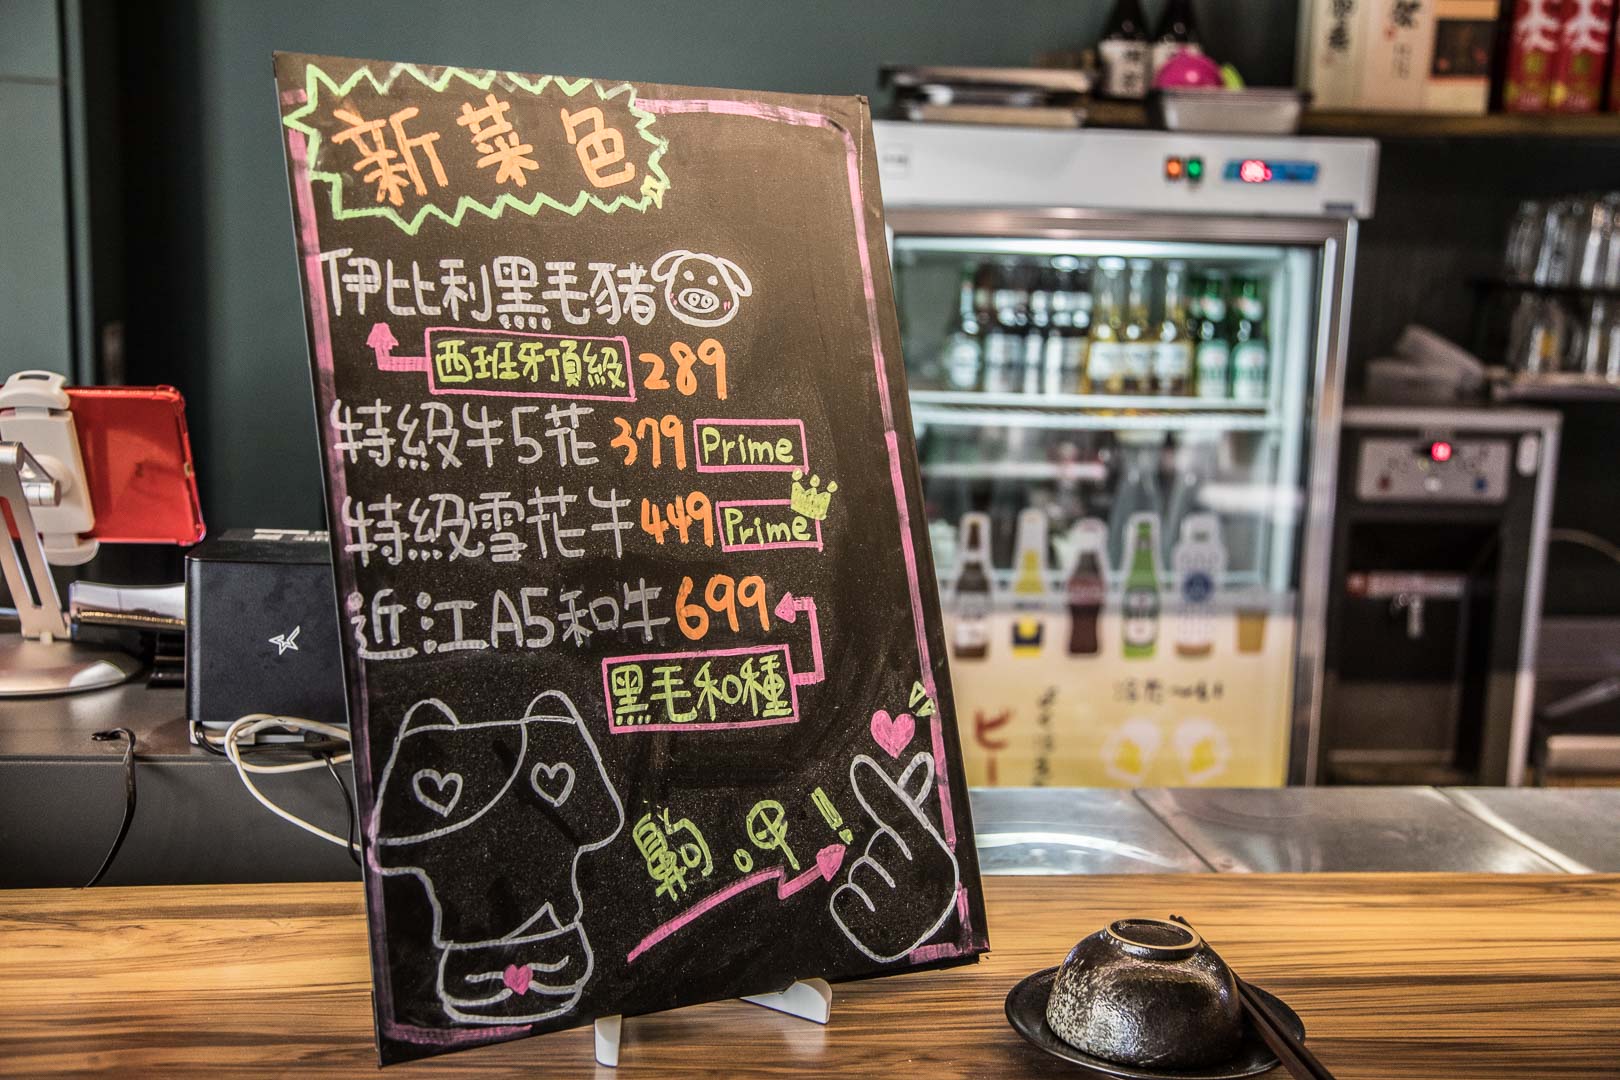 新菜色
伊比利黑毛豬
西班牙頂級 289
特級牛5花 379 Prime
特級雪花牛 449 Prime
近江A5和牛 699
黑毛和種
呷!